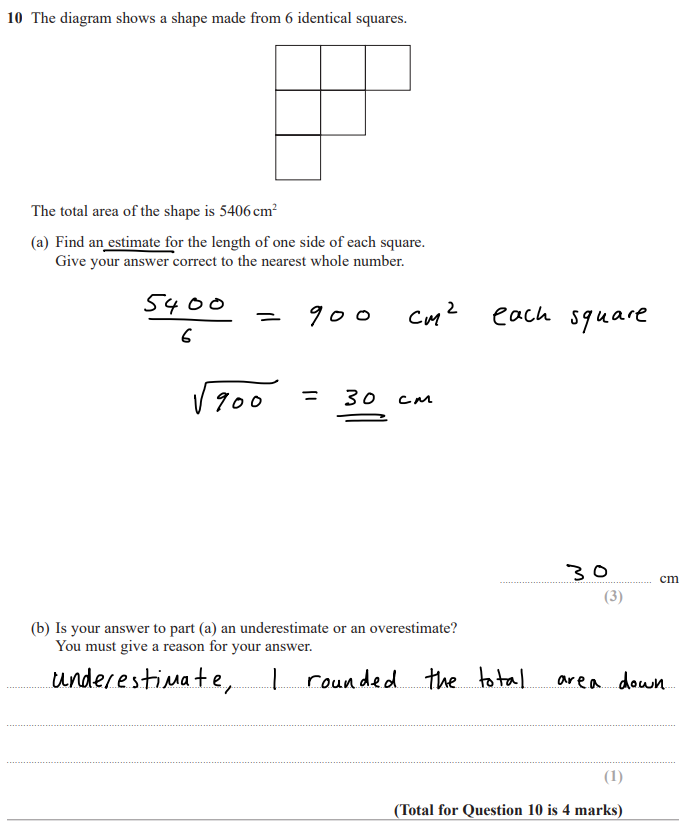 10 The diagram shows a shape made from 6 identical squares.
The total area of the shape is 5406 cm²
(a) Find an estimate for the length of one side of each square.
Give your answer correct to the nearest whole number.
5400/6 = 900 cm² each square
√900 = 30 cm
30 cm
(3)
(b) Is your answer to part (a) an underestimate or an overestimate?
You must give a reason for your answer.
underestimate, I rounded the total area down
(1)
(Total for Question 10 is 4 marks)